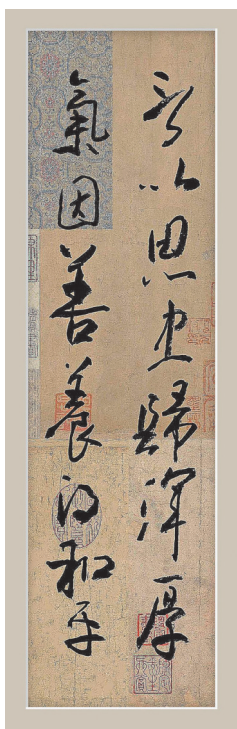 言以思忠歸渾厚
氣因善養得和平